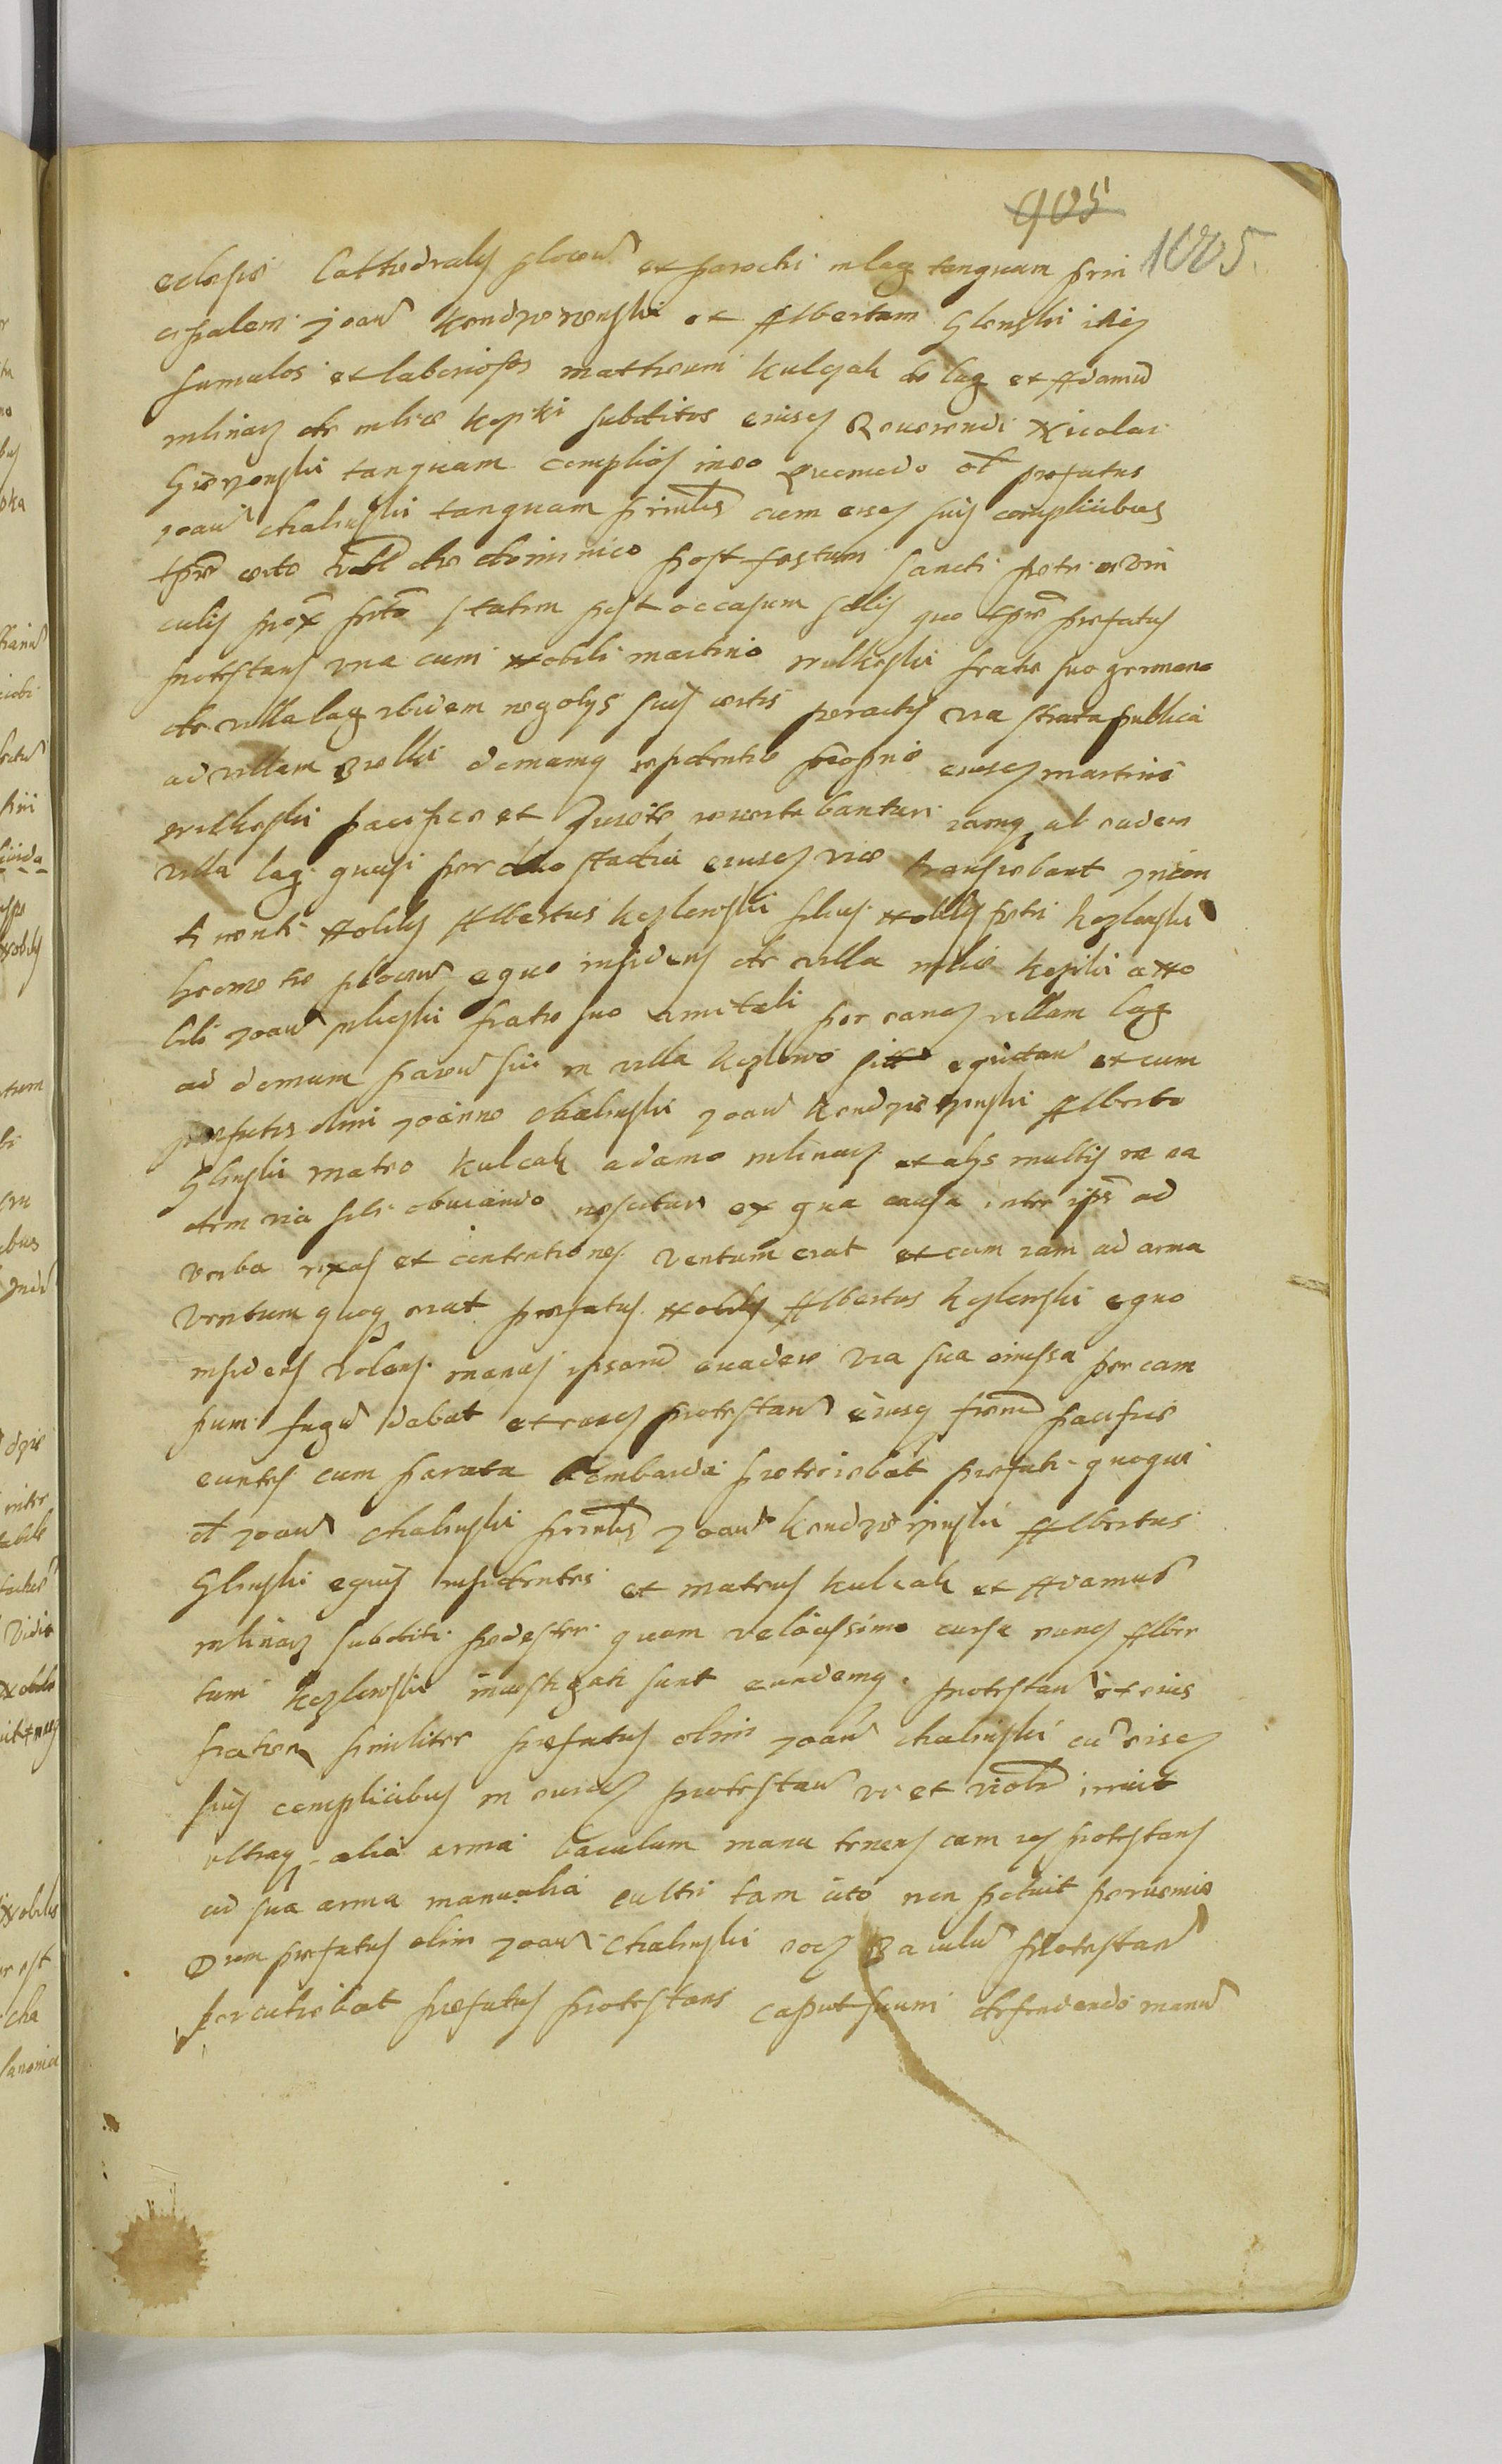 905
1005
eclesie Cathedralis plocen et parochi in lag tanquam prin
cipalem Joan Kendzerzenski et Albertum Glenski illiq
famulos et laboriosos matheum kulczak de lag et Adamu
mlinarz de mlice kepki subditos eiusq Reuerendi Nicolai
tanquam complices ineo Quomodo ol prefatus
Joan chalinski tanquam prinlis cum eisq suis complicibus
tpre certo vidl die dominico post festum sancti petri ad vin
culis prox prto statim post occasum solis quo tpre prefatus
protestans vna cum Nobili martino wilkoski fratre suo germano
de villa lag ibidem negotys suis certis peractis via strata publica
ad villam wilki domamq residentie proprie eiusq martini
wilkoski pacifice et Quiete reuertebantur iamq ab eadem
villa lag quasi per duo stadia eiusq vie transiebant Incon
tinenti Nobilis Albertus kozlowski filius Nobilis petri kozlowski
plocen equo insidens de villa mlice kepki a No
bili Joan fratre suo amitali per eanq villam lag
ad domum paren sui in villa kozlowo equitan et cum
prefatis olim Joanne chalinski Joan kendzierzynski Alberto
Glinski mateo kulcak adamo mlinarz et alys multis in ea
dem via sibi obuiando nescitur ex qua causa inter ipso ad
verba rixas et contentiones ventum erat et cum iam ad arma
ventum quoq erat prefatus Nobilis Albertus kozlowski equo
insidens volens manus ipsoru euadere via sua omissa per cam
pum fuga dabat et eanq protestan eiusq frem pacifice
euntes cum parata bombarda preteriebat prefati quoque
ol Joan chalinski prinlis Joan kendzierzinski Albertus
Glinski equis insidentes et mateus kulcak et Adamus
mlinarz subditi pedester quam velocissimo cursu eunq Alber
tum kozlowski inuestigati sunt eundemq protestan et eius
fratrem similiter prefatus olim Joan chalinski cu eisq
suis complicibus in eundq protestan vi et violr irruit
vltraq alia arma baculum manu tenens cum isq protestans
ad sua arma manualia cultri tam cito non potuit peruenire
Dum prefatus olim Joan chalinski eoq Baculu protestan
percutiebat prefatus protestans caput suum defendendo manu